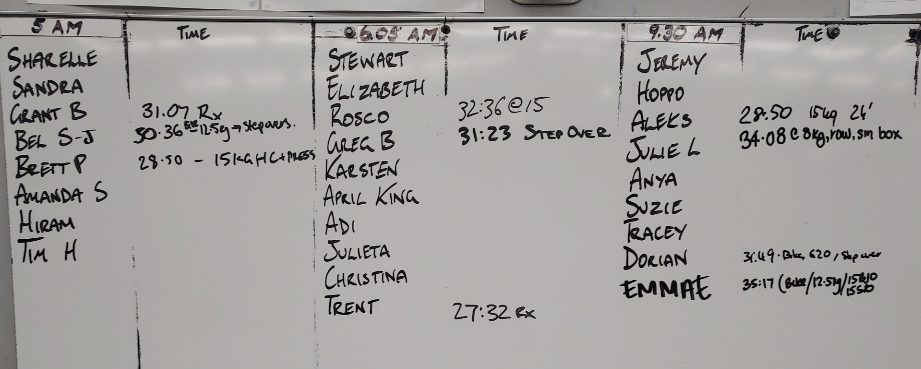 5 AM
TIME
SHARELLE
SANDRA
GRANT B 31.07 Rx
BEL S-J 30:36 12.5kg → stepovers.
BRETT P 28.50 - 15kg H C+PRESS
AMANDA S
HIRAM
TIM H
6.05 AM
TIME
STEWART
ELIZABETH
ROSCO 32:36 @ 15
GREG B 31:23 STEP OVER
KARSTEN
APRIL KING
ADI
JULIETA
CHRISTINA
TRENT 27:32 Rx
9.30 AM
TIME
JEREMY
HOPPO
ALEKS 28.50 15kg 24'
JULIE L 34.08 @ 8kg, row, sm box
ANYA
SUZIE
TRACEY
DORIAN Bike, step over
EMMAE 35:17 (Bike/12.5kg/